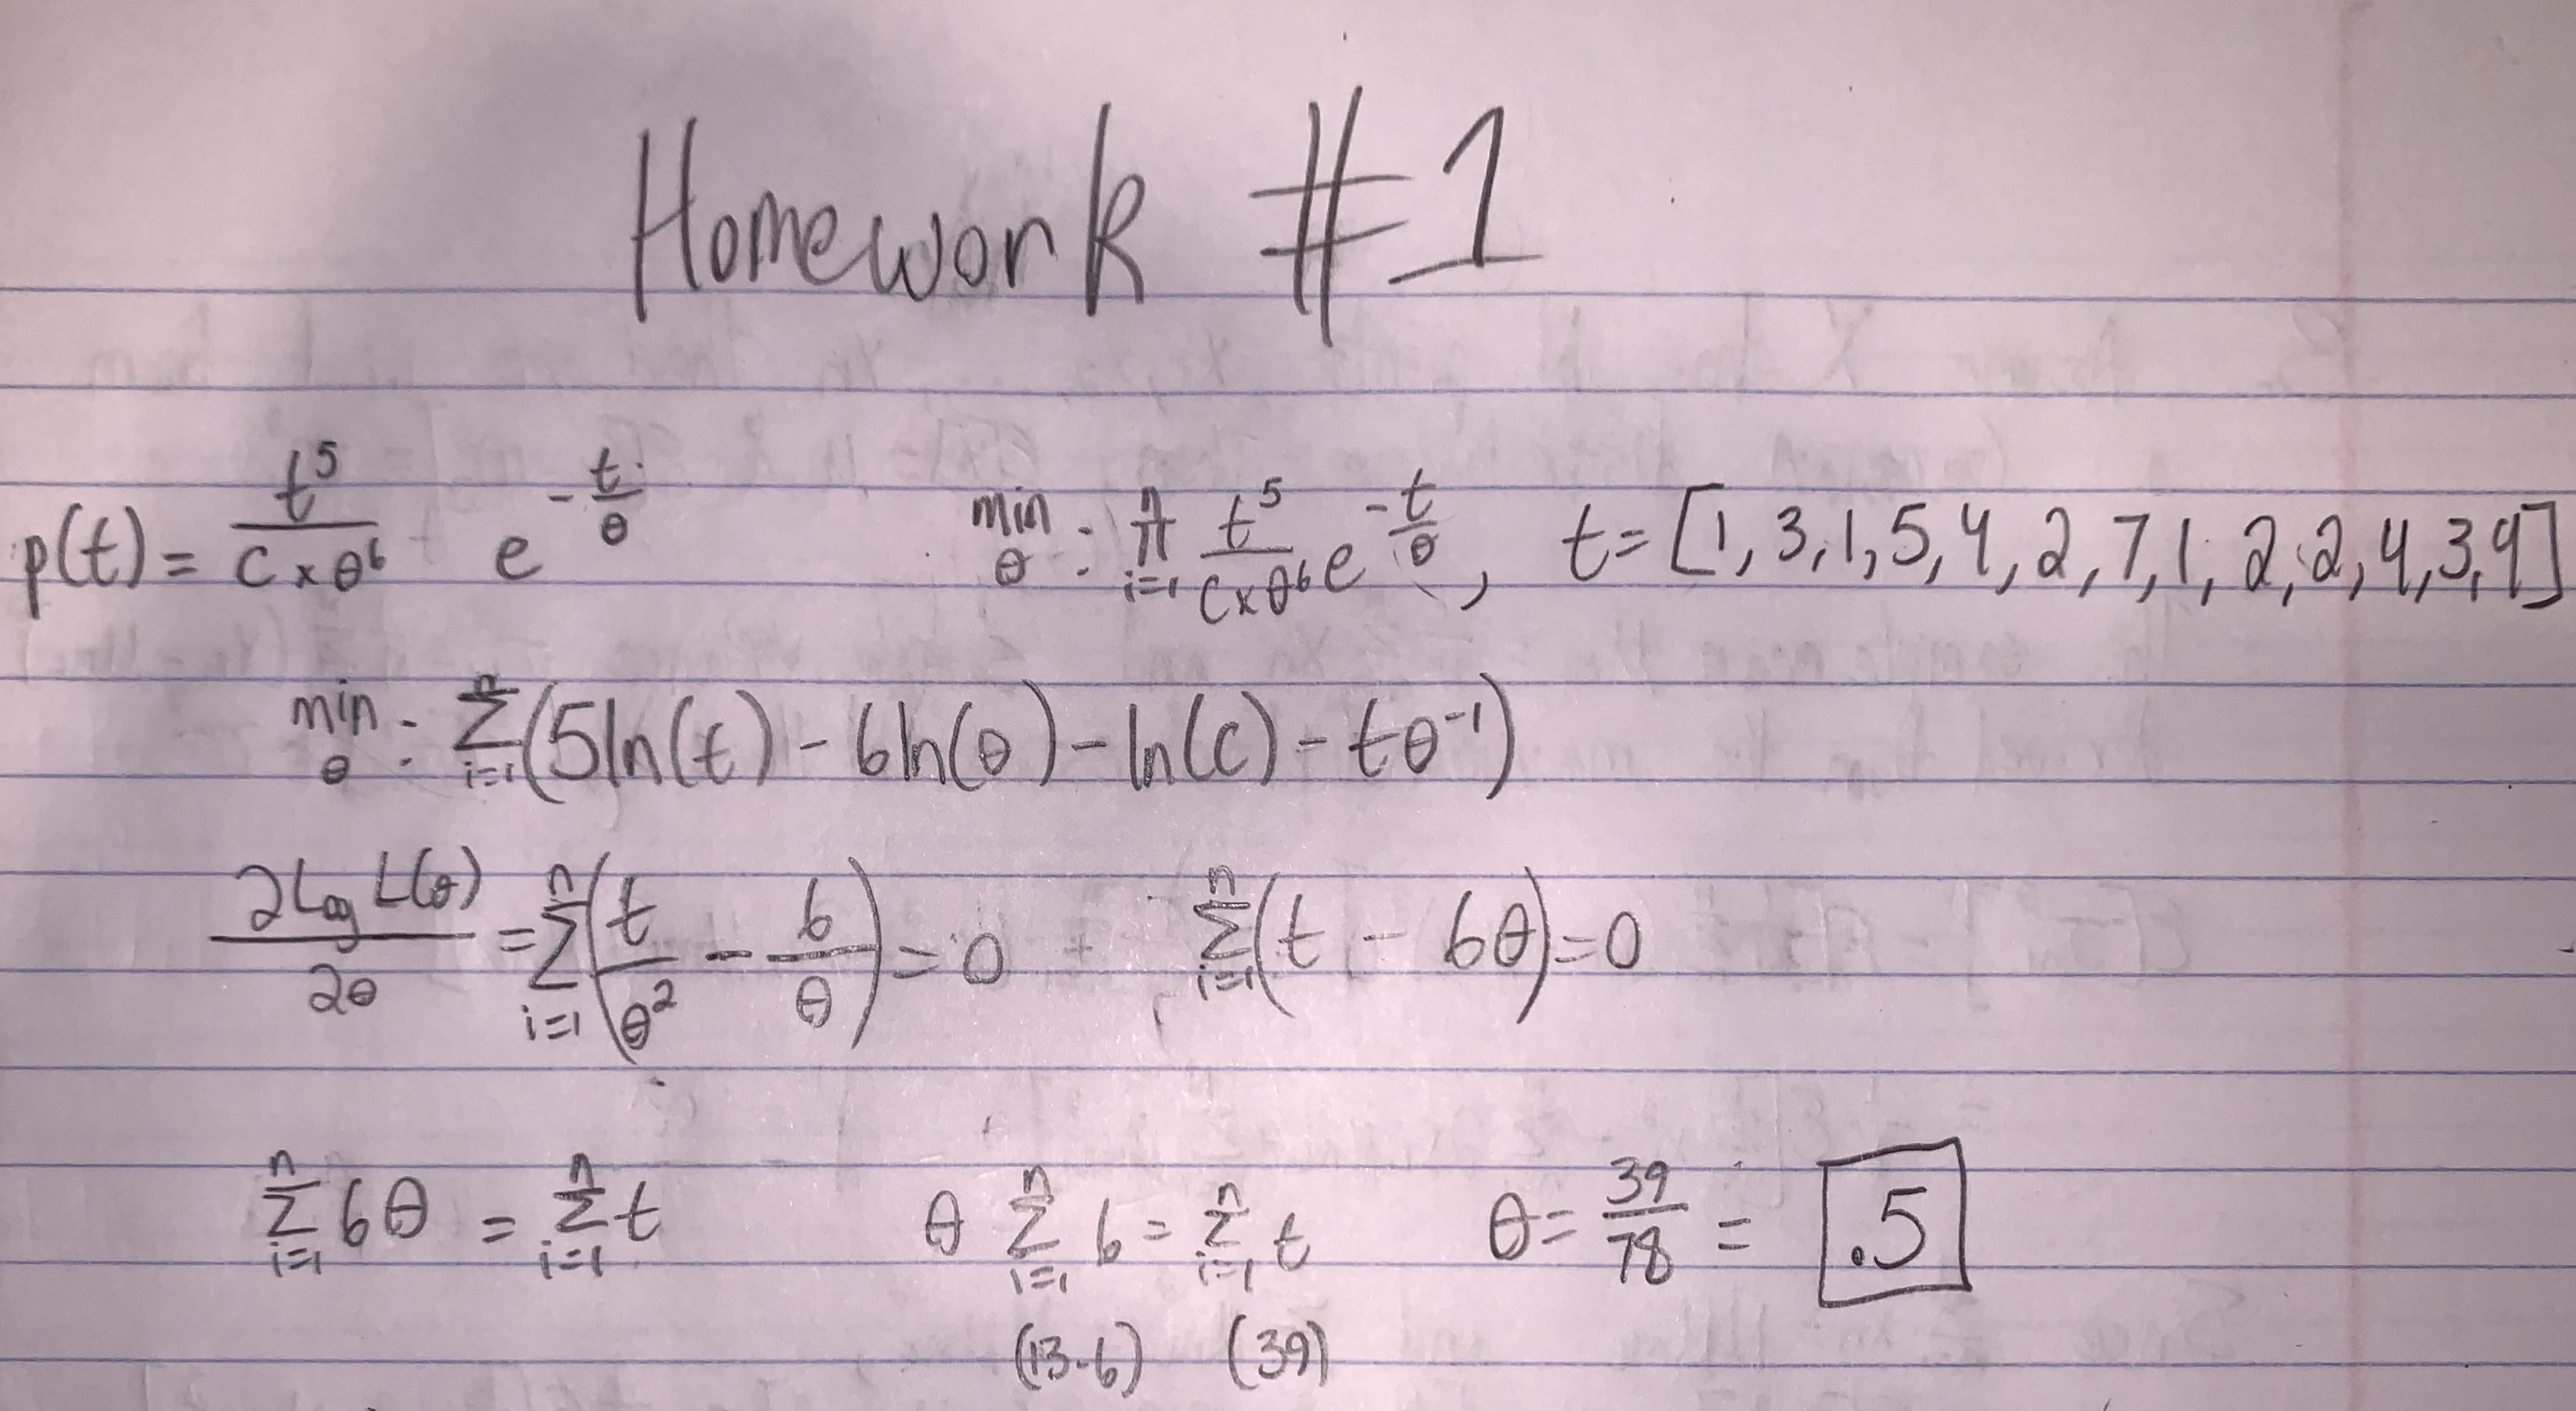 Homework #1
p(t) = t⁵/(c × θ⁶) e^(-t/θ) min θ : π i=1 n t⁵/(c × θ⁶) e^(-t/θ), t = [1, 3, 1, 5, 4, 2, 7, 1, 2, 2, 4, 3, 4]
min θ : Σ i=1 n (5ln(t) - 6ln(θ) - ln(c) - tθ⁻¹)
∂Log L(θ)/∂θ = Σ i=1 n (t/θ² - 6/θ) = 0 Σ i=1 n (t - 6θ) = 0
Σ i=1 n 6θ = Σ i=1 n t θ Σ i=1 n 6 = Σ i=1 n t θ = 39/78 = .5
(13·6) (39)